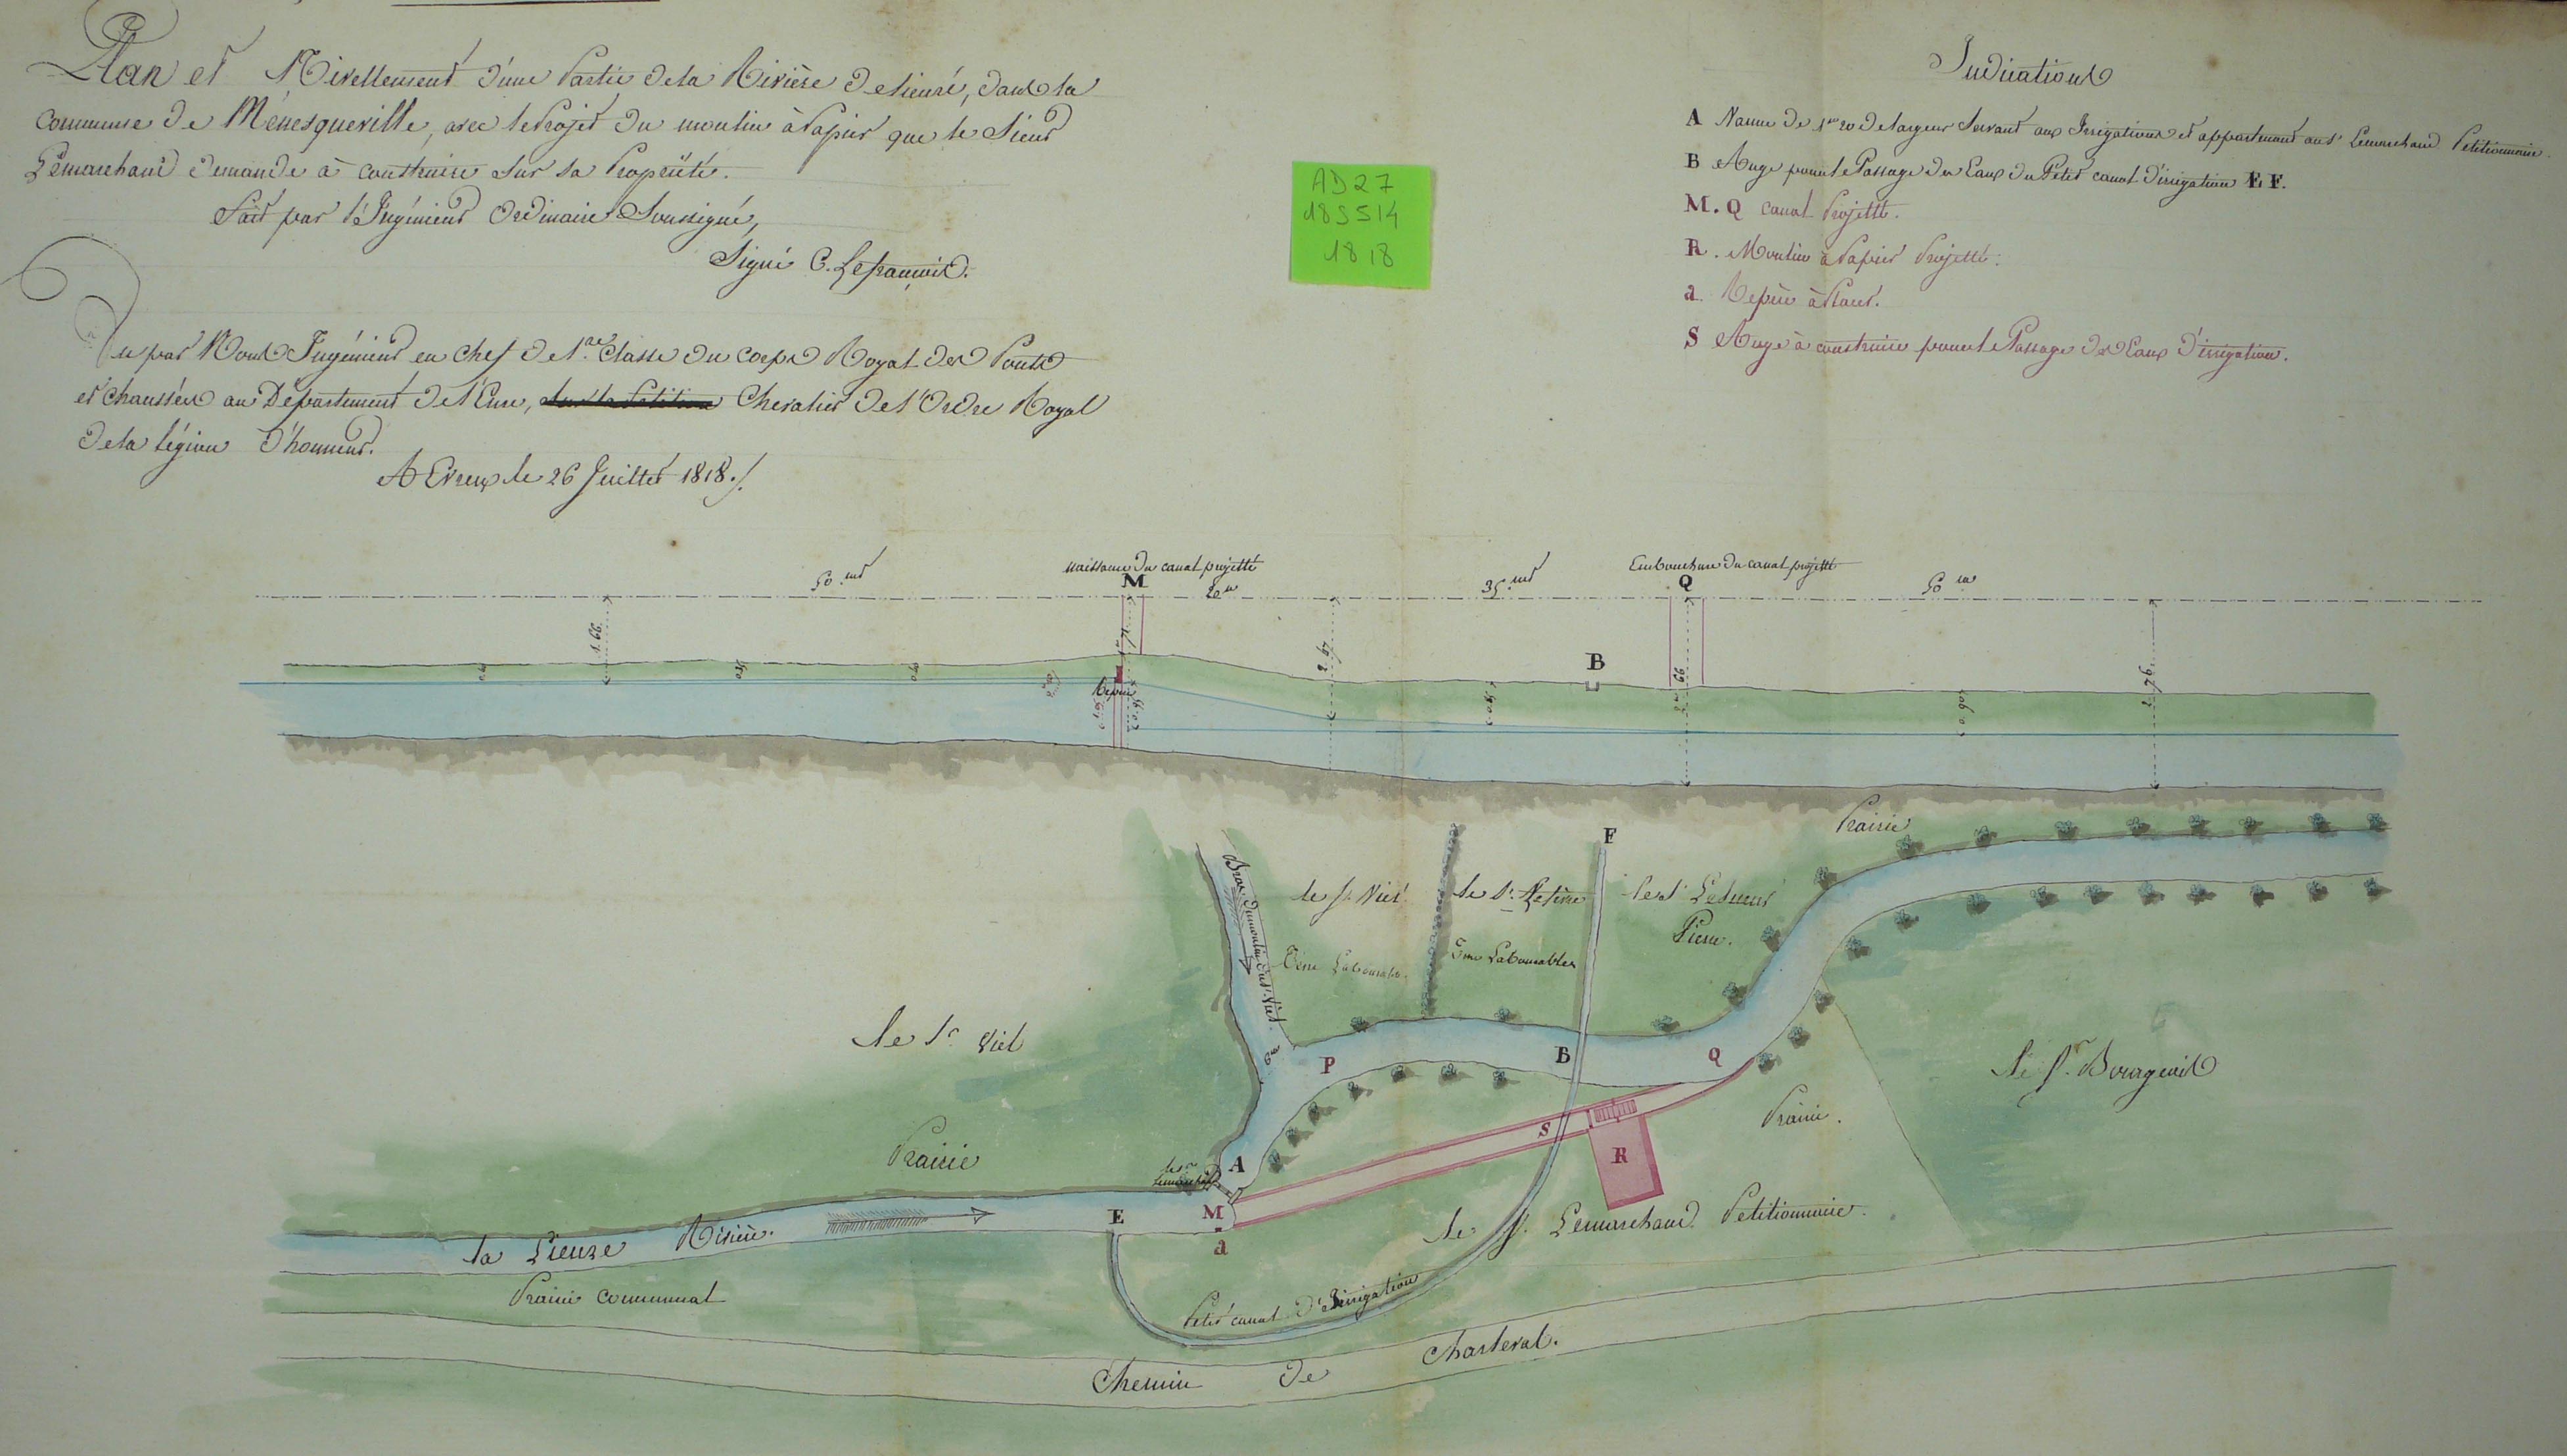 Plan et Nivellement d'une Partie de la Rivière de lieure, dans la
commune de Ménesqueville, avec le Projet du moulin à Papier que le Sieur
Lemarchand demande à construire sur sa Propriété.
Fait par l'Ingénieur Ordinaire Soussigné,
Signé C. Lefrançois.
Vu par Nous Ingénieur en chef de 1.re Classe du corps Royal des Ponts
et chaussées au Département de l'Eure, Chevalier de l'Ordre Royal
de la légion d'honneur.
A Evreux le 26 Juillet 1818./.
AD27
18S514
1818
Indications
A Vanne de 1m 20 de largeur Servant aux Irrigations et appartenant au Sr Lemarchand Petitionnaire
B Auge pour le Passage des Eaux du Petit canal d'irrigation E, F.
M.Q canal Projetté.
R. Moulin à Papier Projetté.
a Repère à Placer.
S Auge à construire pour le Passage des Eaux d'irrigation.
naissance du canal projetté
Embouchure du canal projetté
50 mt M 20 m 35 mt Q 50 m
1.66
2.67
2m 66
2.76
B
Repère
0.85
0.90
Prairie
F
Bras du moulin du Sr Viel
le Sr Viel
le Sr Lefèvre
le Sr Lesueur
Pierre.
Terre Labourable.
Terres Labourables
le Sr Viel
P B Q
le Sr Bourgeois
Prairie
Prairie.
A
le Sr
Lemarchand
S R
E M
a
le Sr Lemarchand Petitionnaire.
la Lieure Rivière.
Prairie communal
Petit canal d'Irrigation
Chemin de Charleval.